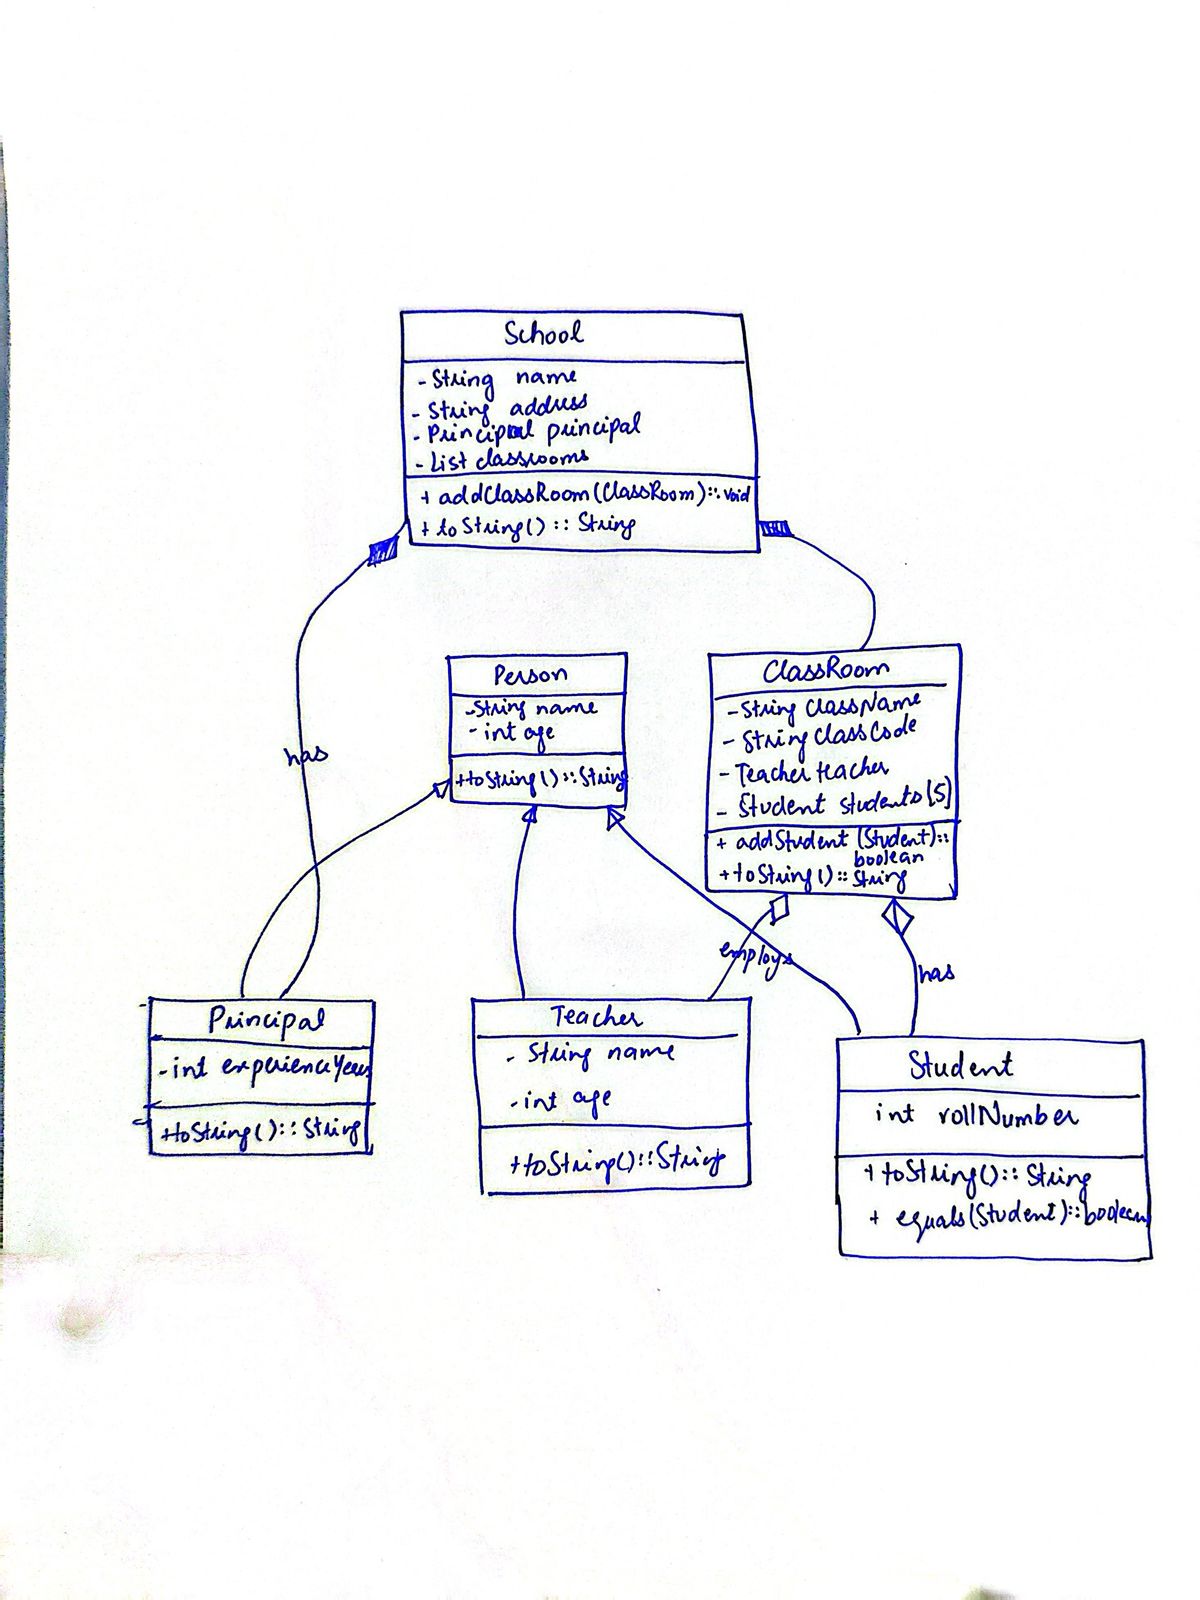 School
- String name
- String address
- Principal principal
- List classrooms
+ addClassRoom(ClassRoom)::void
+ toString() :: String
has
Person
- String name
- int age
+toString()::String
ClassRoom
- String className
- String ClassCode
- Teacher teacher
- Student students[5]
+ addStudent (Student)::
boolean
+toString()::String
employs
has
Principal
- int experienceYears
+toString()::String
Teacher
- String name
- int age
+toString()::String
Student
int rollNumber
+ toString()::String
+ equals(Student)::boolean